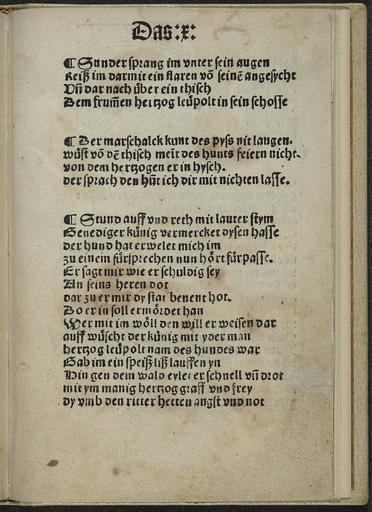 Das :x:
¶ Sunder sprang im vnter sein augen
Reiß im darmit ein flaren võ seinẽ angesycht
Vñ dar nach über ein thisch
Dem frum̃en hertzog leüpolt in sein schosse
¶ Der marschalck kunt des pyss nit langen.
wüst võ dẽ thisch ment des hunts feiern nicht.
von dem hertzogen er in hysch.
der sprach den hũt ich dir mit nichten lasse.
¶ Stund auff vnd reth mit lauter stym
Genediger künig vermercket dysen hasse
der hund hat erwelet mich im
zu einem fürsprechen nun hört fürpasse.
Er sagt mir wie er schuldig sey
An seins heren dot
dar zu er mir dy stat benent hot.
Do er in soll ermördet han
Wer mit im wöll den will er weisen dar
auff wüscht der künig mit yder man
hertzog leüpolt nam des hundes war
Gab im ein speiß ließ lauffen yn
Hin gen dem wald eylet er schnell vñ drot
mit ym manig hertzog graff vnd frey
dy vmb den ritter hetten angst vnd not